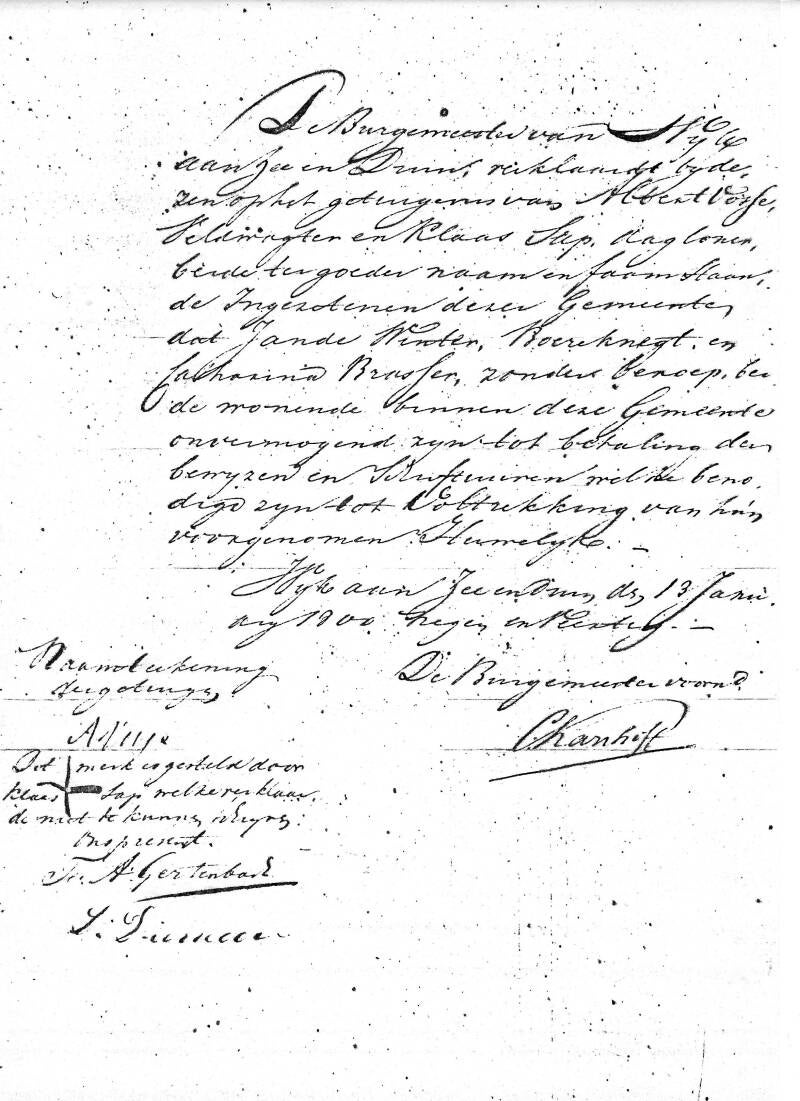 De Burgemeester van Wyk
aan Zee en Duin, verklaardt by de,
zen op het getuigenis van Albert Vosse,
Veldwagter en Klaas Sap, dagloner,
beide ter goeder naam en faam staan,
de Ingezetenen dezer Gemeente,
dat Jan de Winter, Boereknegt, en
Catharina Brasser, zonder beroep, bei
de wonende binnen deze Gemeente
onvermogend zyn tot betaling der
bewyzen en Stuftuiren welke beno,
digd zyn tot Voltrekking van hun
voorgenomen Huwelyk. —
Wyk aan Zee en Duin den 13 Janu.
ary 1800 negen en Veertig. —
Naamteekening
der getuigen
De Burgemeester voornd.
Dit merk is gesteld door
Klaas Sap welke verklaar,
de niet te kunnen schryven
Ons present.
A. Gertenbach